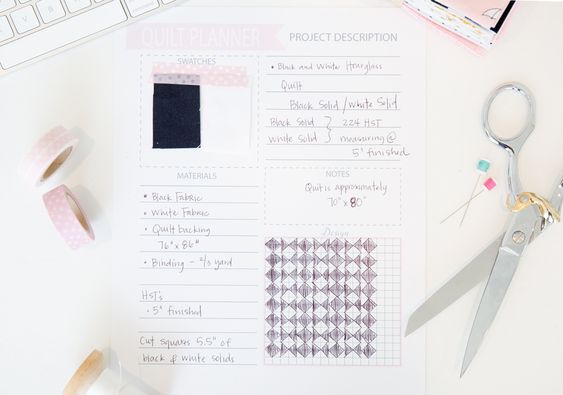 QUILT PLANNER
PROJECT DESCRIPTION
SWATCHES
• Black and White Hourglass
Quilt
Black Solid / White Solid
Black Solid } 224 HST
White Solid } measuring @
5" finished
MATERIALS
• Black Fabric
• White Fabric
• Quilt backing
76" x 86"
• Binding - 2/3 yard
HST's
• 5" finished
Cut squares 5.5" of
black & white solids
NOTES
Quilt is approximately
70" x 80"
Design